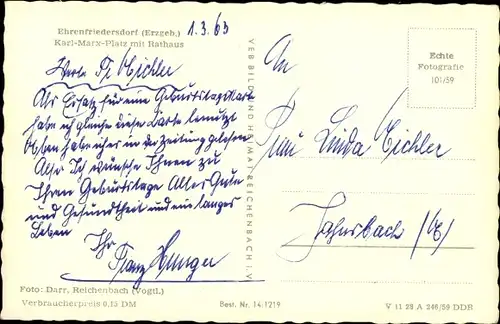 Ehrenfriedersdorf (Erzgeb.)
Karl-Marx-Platz mit Rathaus
1.3.63
Werte Fr Eichler
Als Ersatz für eine Geburtstagskart
habe ich gleich diese Karte benutzt
habe ich es in der Zeitung gelesen
Also Ich wünsche Ihnen zu
Ihren Geburtstage Alles Gute
und Gesundheit und ein langes
Leben
Ihr
Franz Hunger
Foto: Darr, Reichenbach (Vogtl.)
Verbraucherpreis 0,15 DM
VEB BILD UND HEIMAT REICHENBACH I. V.
Best. Nr. 14/1219
Echte
Fotografie
101/59
An
Frau Linda Eichler
Jahnsbach /
V 11 28 A 246/59 DDR